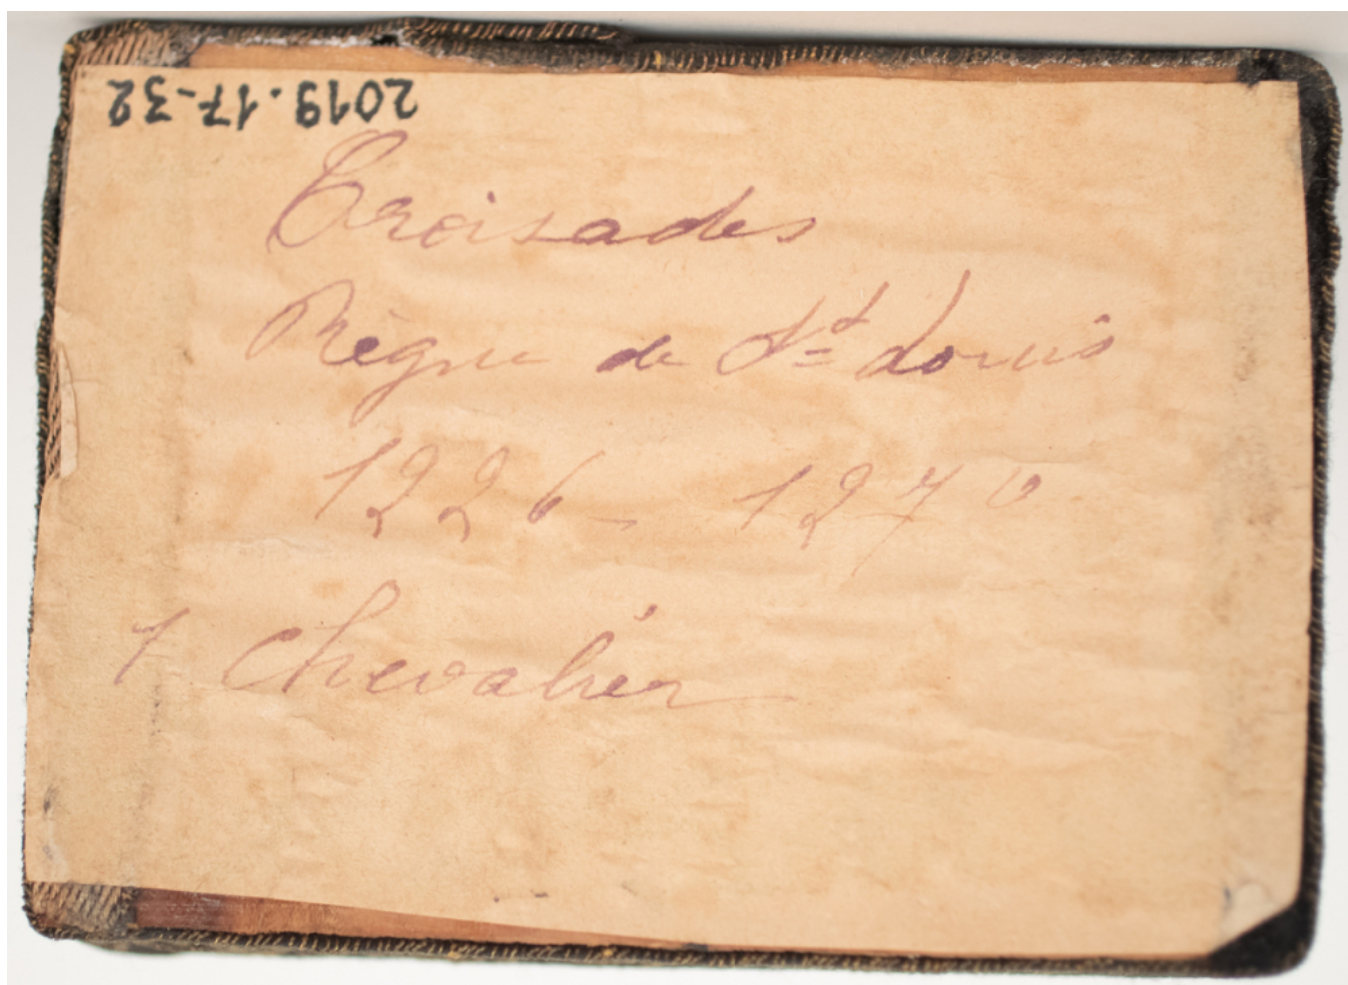 2019.17-32
Croisades
Règne de St Louis
1226 - 1270
1 Chevalier